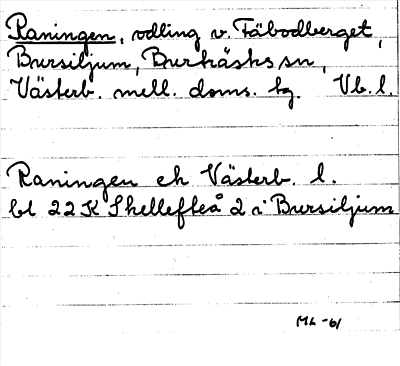 Raningen, odling v. Fäbodberget,
Bursiljum, Burträsks sn,
Västerb. mell. doms. tg. Vb. l.
Raningen ek Västerb. l.
bl 22 K Skellefteå 2 i Bursiljum
ML -61